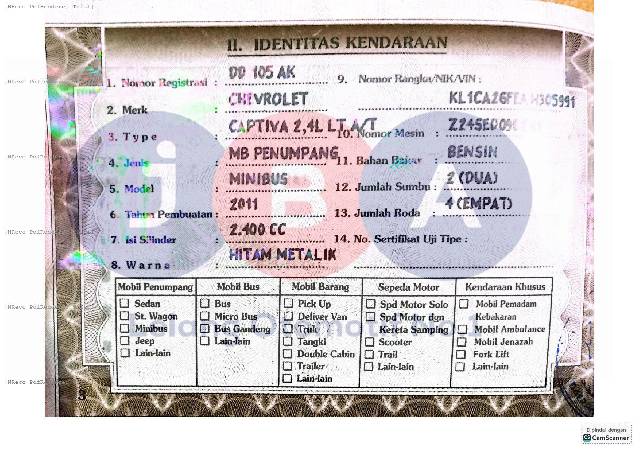 II. IDENTITAS KENDARAAN
1. Nomor Registrasi : DD 105 AK
2. Merk : CHEVROLET
3. Type : CAPTIVA 2,4L LT A/T
4. Jenis : MB PENUMPANG
5. Model : MINIBUS
6. Tahun Pembuatan : 2011
7. Isi Silinder : 2.400 CC
8. Warna : HITAM METALIK
9. Nomor Rangka/NIK/VIN :
10. Nomor Mesin :
11. Bahan Bakar : BENSIN
12. Jumlah Sumbu : 2 (DUA)
13. Jumlah Roda : 4 (EMPAT)
14. No. Sertifikat Uji Tipe :
Mobil Penumpang
Sedan
St. Wagon
Minibus
Jeep
Lain-lain
Mobil Bus
Bus
Micro Bus
Bus Gandeng
Lain-lain
Mobil Barang
Pick Up
Deliver Van
Truk
Tangki
Double Cabin
Trailer
Lain-lain
Sepeda Motor
Spd Motor Solo
Spd Motor dgn
Kereta Samping
Scooter
Trail
Lain-lain
Kendaraan Khusus
Mobil Pemadam
Kebakaran
Mobil Ambulance
Mobil Jenazah
Fork Lift
Lain-lain
jBA
3
Dipindai dengan
CamScanner